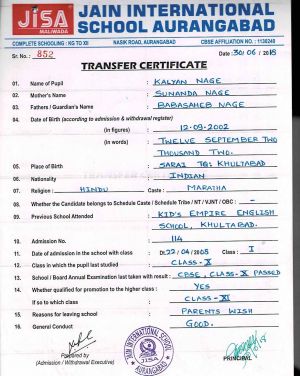 JISA
MALIWADA
JAIN INTERNATIONAL
SCHOOL AURANGABAD
COMPLETE SCHOOLING : KG TO XII NASIK ROAD, AURANGABAD CBSE AFFILIATION NO. : 1130249
Sr. No. : 852 Date: 30/06/2018
TRANSFER CERTIFICATE
01. Name of Pupil : KALYAN NAGE
02. Mother's Name : SUNANDA NAGE
03. Fathers / Guardian's Name : BABASAHEB NAGE
04. Date of Birth (according to admission & withdrawal register)
(in figures) : 12-09-2002
(in words) : TWELVE SEPTEMBER TWO
THOUSAND TWO.
05. Place of Birth : SARAI TQ: KHULTABAD
06. Nationality : INDIAN
07. Religion : HINDU Caste : MARATHA
08. Whether the Candidate belongs to Schedule Caste / Schedule Tribe / NT / VJNT / OBC : -
09. Previous School Attended : KID'S EMPIRE ENGLISH
SCHOOL, KHULTABAD.
10. Admission No. : 114
11. Date of admission in the school with class : Dt. 22/04/2008 Class : I
12. Class in which the pupil last studied : CLASS-X
13. School / Board Annual Examination taken with result : CBSE, CLASS-X PASSED
14. Whether qualified for promotion to the higher class : YES
If so to which class : CLASS-XI
15. Reasons for leaving school : PARENTS WISH
16. General Conduct : GOOD.
Prepared by
(Admission / Withdrawal Executive)
JAIN INTERNATIONAL SCHOOL
JISA
AURANGABAD
PRINCIPAL